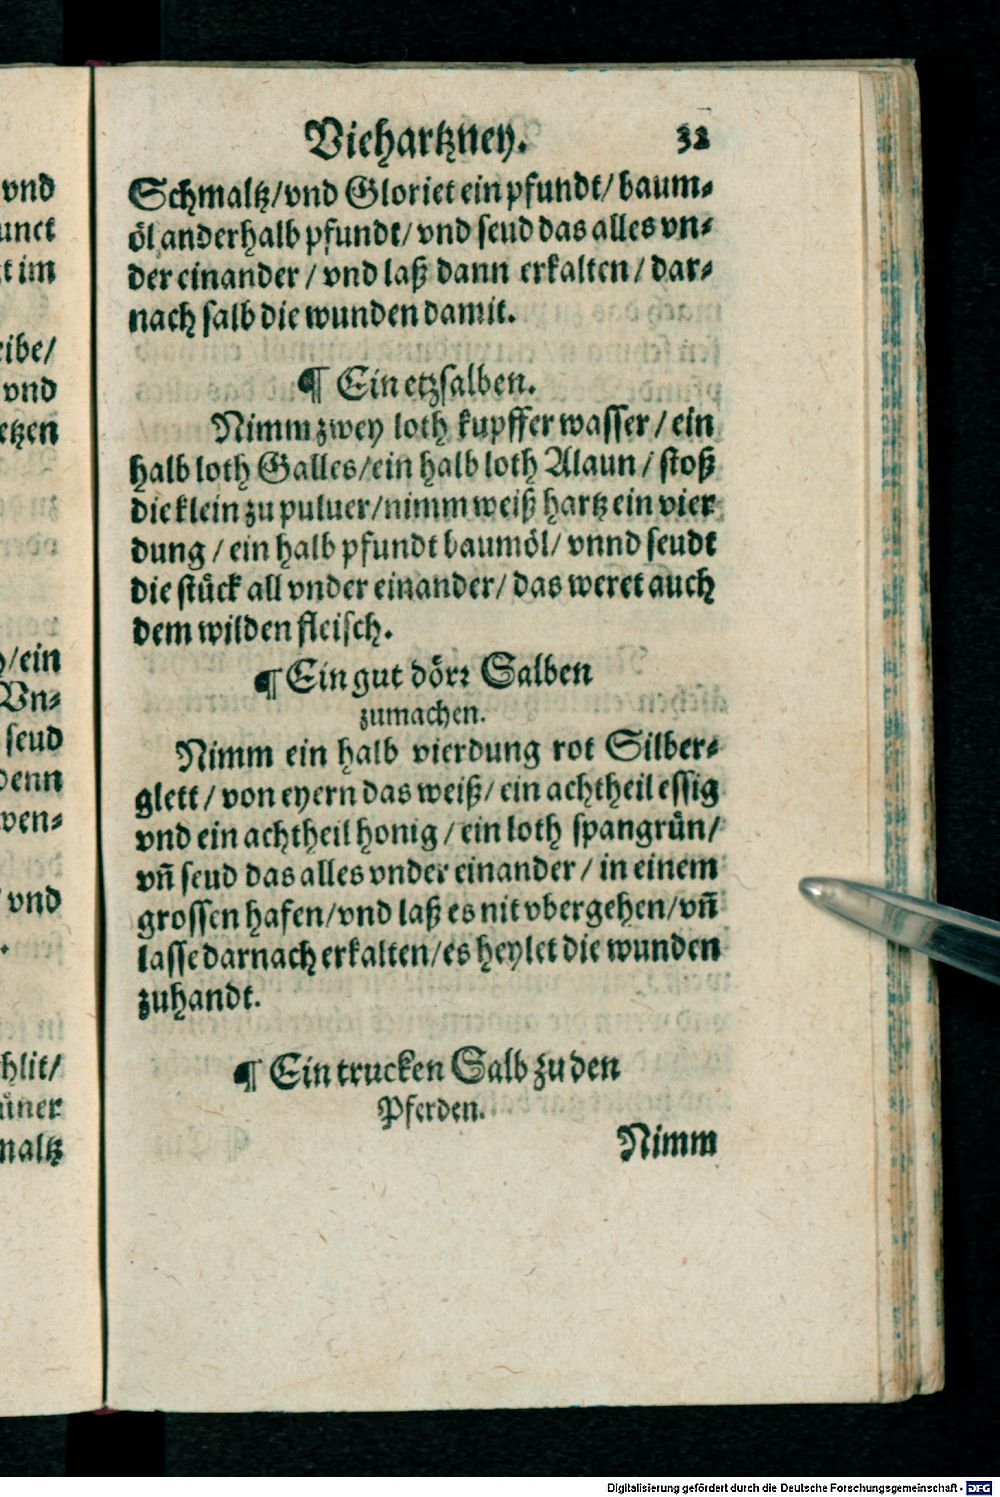 Viehartzney. 32
Schmaltz/vnd Gloriet ein pfundt/baum⸗
öl anderhalb pfundt/ vnd seud das alles vn⸗
der einander / vnd laß dann erkalten/ dar⸗
nach salb die wunden damit.
¶ Ein etzsalben.
Nimm zwey loth kupffer wasser / ein
halb loth Galles/ein halb loth Alaun / stoß
die klein zu puluer/nimm weiß hartz ein vier
dung / ein halb pfundt baumöl/ vnnd seudt
die stück all vnder einander/ das weret auch
dem wilden fleisch.
¶ Ein gut dörꝛ Salben
zumachen.
Nimm ein halb vierdung rot Silber⸗
glett / von eyern das weiß/ ein achtheil essig
vnd ein achtheil honig / ein loth spangrün/
vn̄ seud das alles vnder einander / in einem
grossen hafen/vnd laß es nit vbergehen/vn̄
lasse darnach erkalten/es heylet die wunden
zuhandt.
¶ Ein trucken Salb zu den
Pferden.
Nimm
vnd
unct
t im
eibe/
vnd
etzen
/ein
Vn⸗
seud
denn
wen⸗
vnd
.
hlit/
üner
maltz
Digitalisierung gefördert durch die Deutsche Forschungsgemeinschaft - DFG